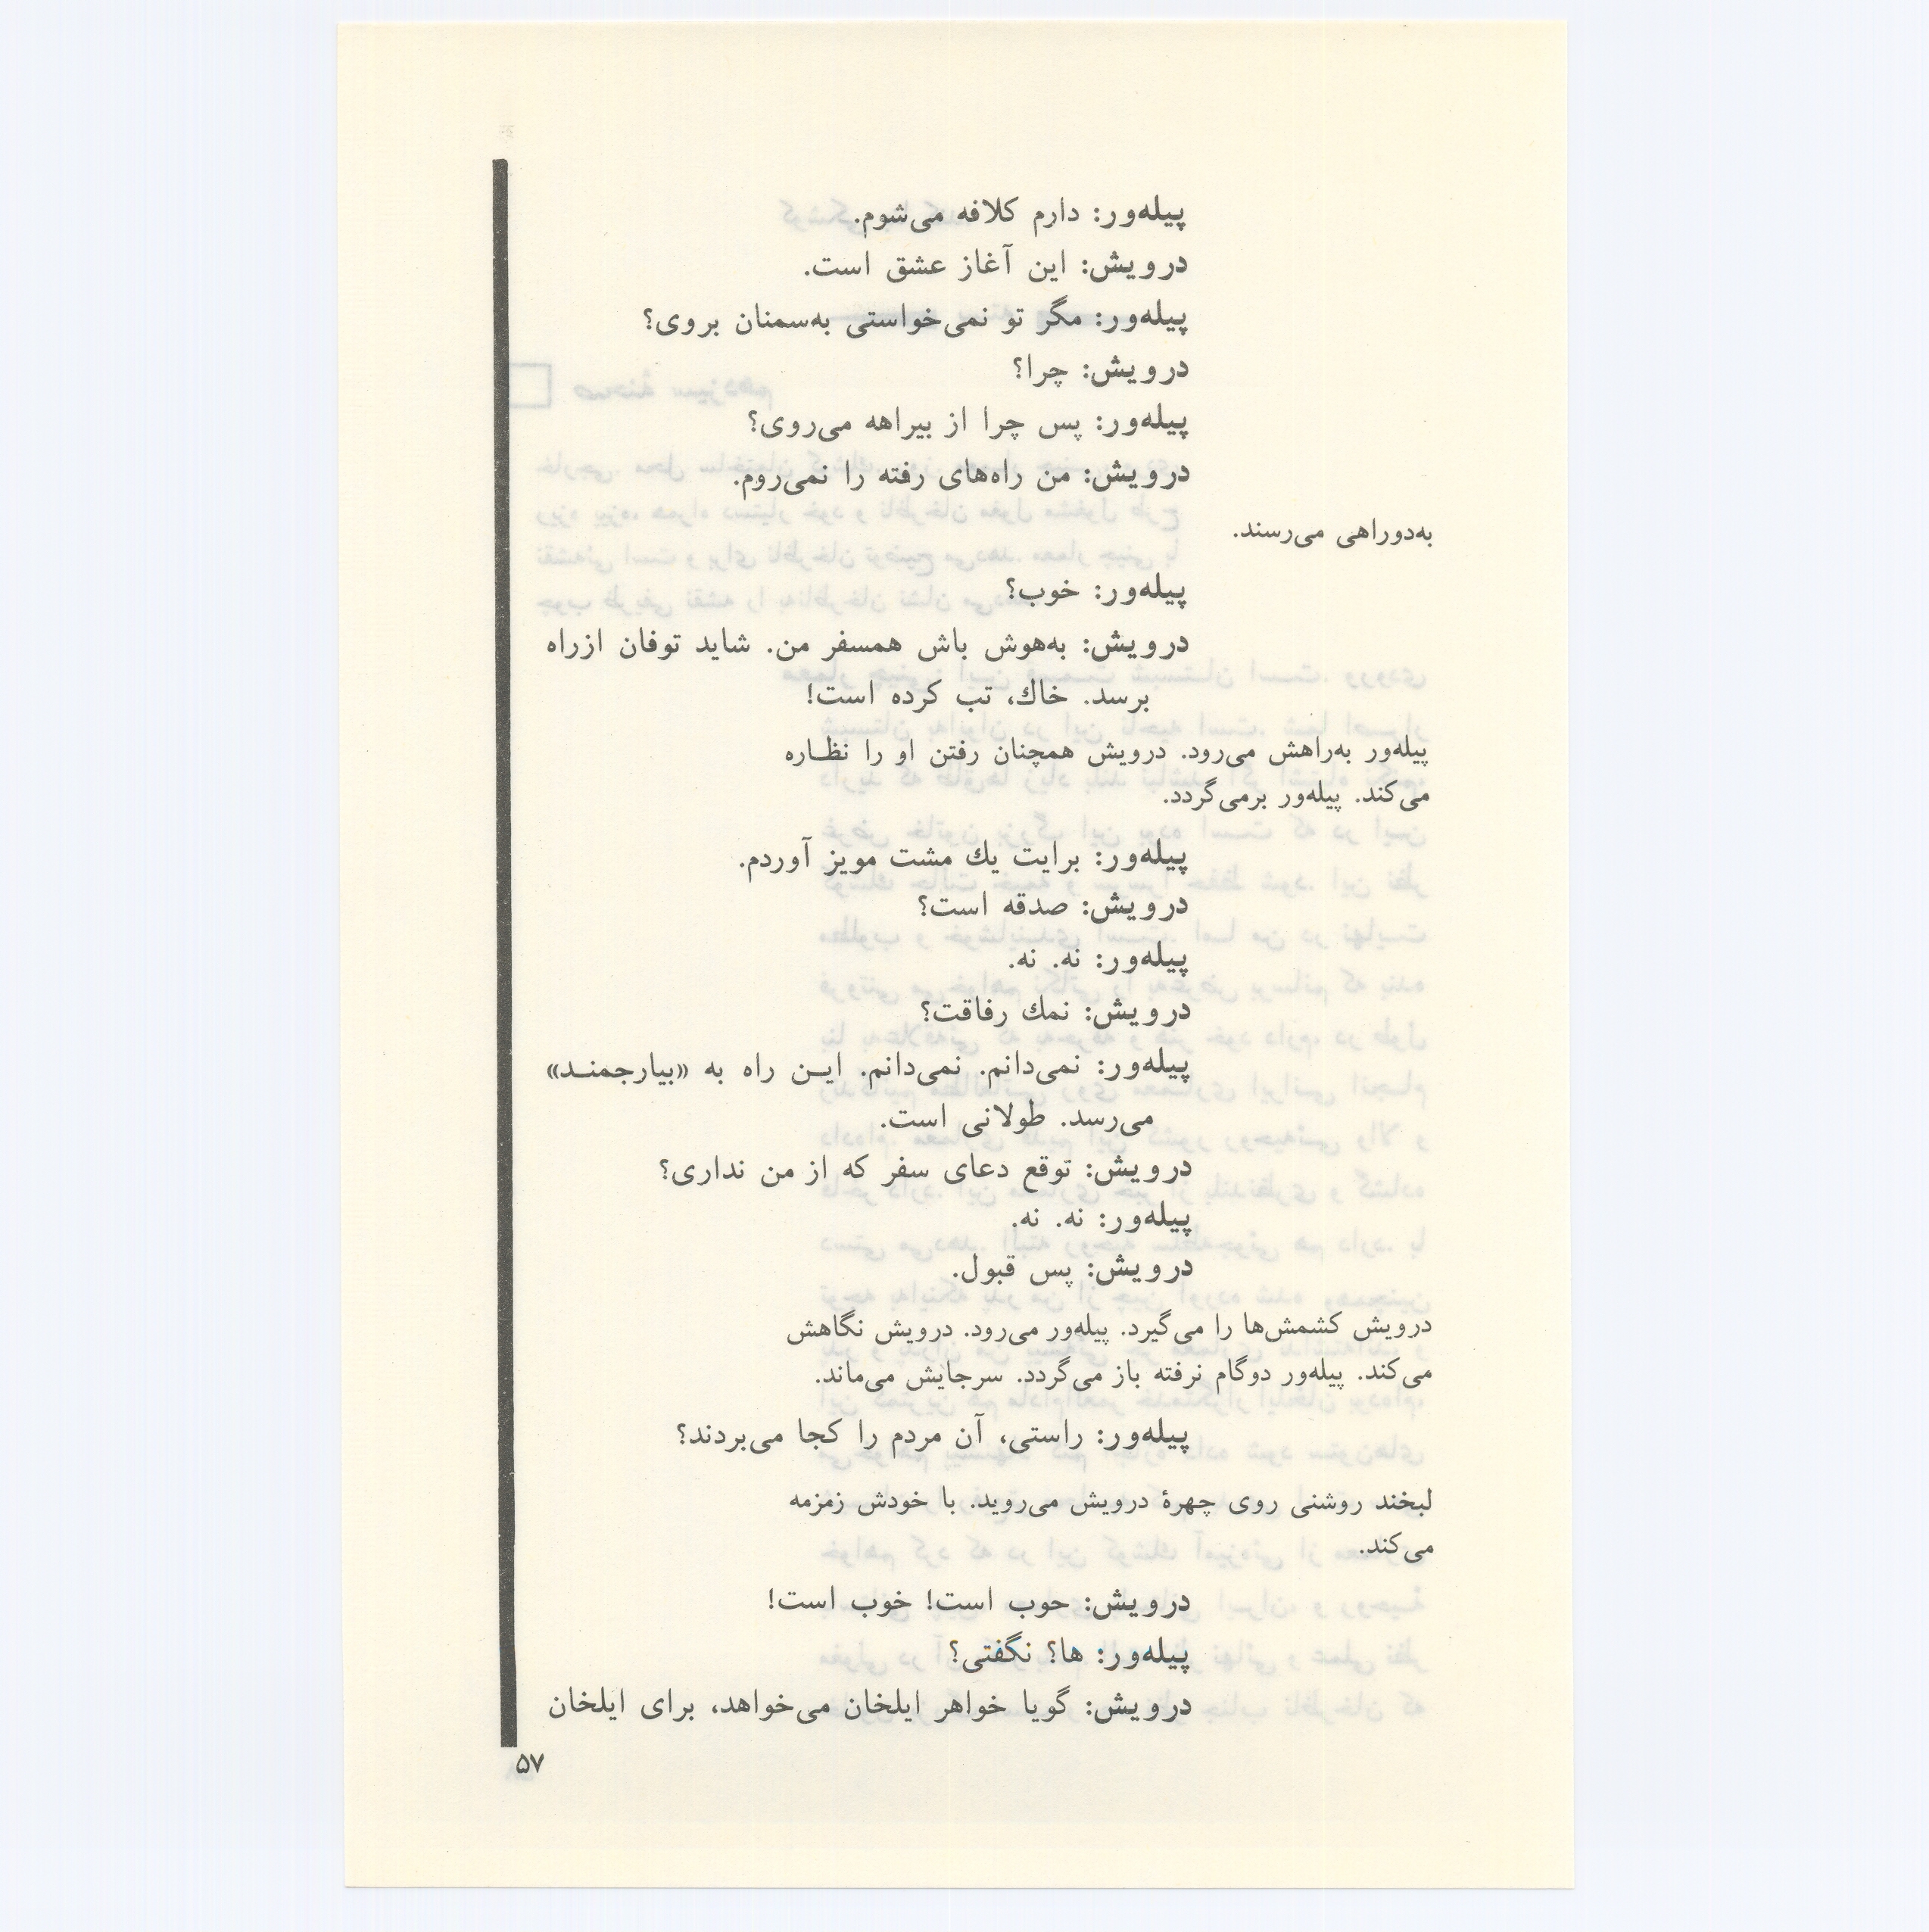 پیله‌ور: دارم کلافه می‌شوم.
درویش: این آغاز عشق است.
پیله‌ور: مگر تو نمی‌خواستی به‌سمنان بروی؟
درویش: چرا؟
پیله‌ور: پس چرا از بیراهه می‌روی؟
درویش: من راه‌های رفته را نمی‌روم.
به‌دوراهی می‌رسند.
پیله‌ور: خوب؟
درویش: به‌هوش باش همسفر من. شاید توفان ازراه
برسد. خاك، تب کرده است!
پیله‌ور به‌راهش می‌رود. درویش همچنان رفتن او را نظـاره
می‌کند. پیله‌ور برمی‌گردد.
پیله‌ور: برایت یك مشت مویز آوردم.
درویش: صدقه است؟
پیله‌ور: نه. نه.
درویش: نمك رفاقت؟
پیله‌ور: نمی‌دانم. نمی‌دانم. ایـن راه به «بیارجمنـد»
می‌رسد. طولانی است.
درویش: توقع دعای سفر که از من نداری؟
پیله‌ور: نه. نه.
درویش: پس قبول.
درویش کشمش‌ها را می‌گیرد. پیله‌ور می‌رود. درویش نگاهش
می‌کند. پیله‌ور دوگام نرفته باز می‌گردد. سرجایش می‌ماند.
پیله‌ور: راستی، آن مردم را کجا می‌بردند؟
لبخند روشنی روی چهرهٔ درویش می‌روید. با خودش زمزمه
می‌کند.
درویش: حوب است! خوب است!
پیله‌ور: ها؟ نگفتی؟
درویش: گویا خواهر ایلخان می‌خواهد، برای ایلخان
۵۷